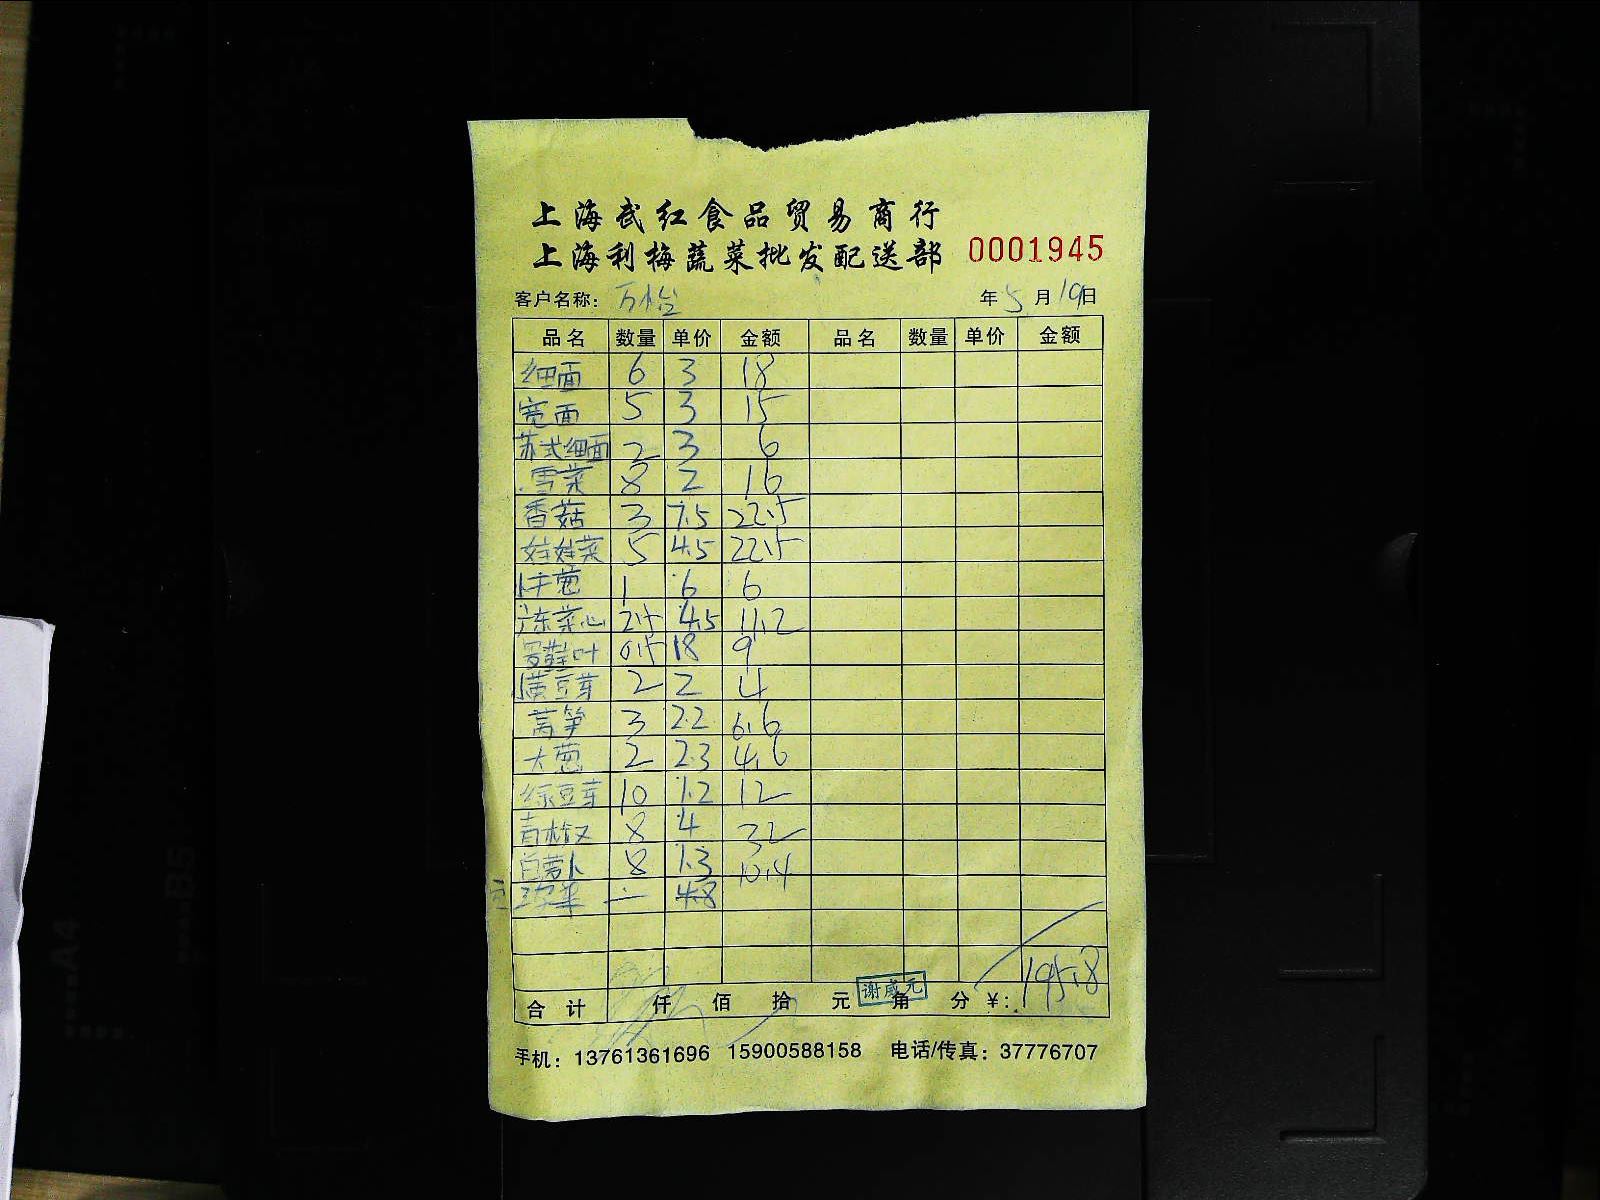 上海武红食品贸易商行
上海利梅蔬菜批发配送部 0001945
客户名称: 万怡 年 5 月 19 日
品名 数量 单价 金额 品名 数量 单价 金额
细面 6 3 18
宽面 5 3 15
苏式细面 2 3 6
雪菜 8 2 16
香菇 3 7.5 22.5
娃娃菜 5 4.5 22.5
洋葱 1 6 6
广东菜心 2.5 4.5 11.2
罗勒叶 0.5 18 9
黄豆芽 2 2 4
莴笋 3 2.2 6.6
大葱 2 2.3 4.6
绿豆芽 10 1.2 12
青椒 8 4 32
白萝卜 8 1.3 10.4
一 4.8
195.8
合计 仟 佰 拾 元 角 分 ¥:
谢咸元
手机: 13761361696 15900588158 电话/传真: 37776707